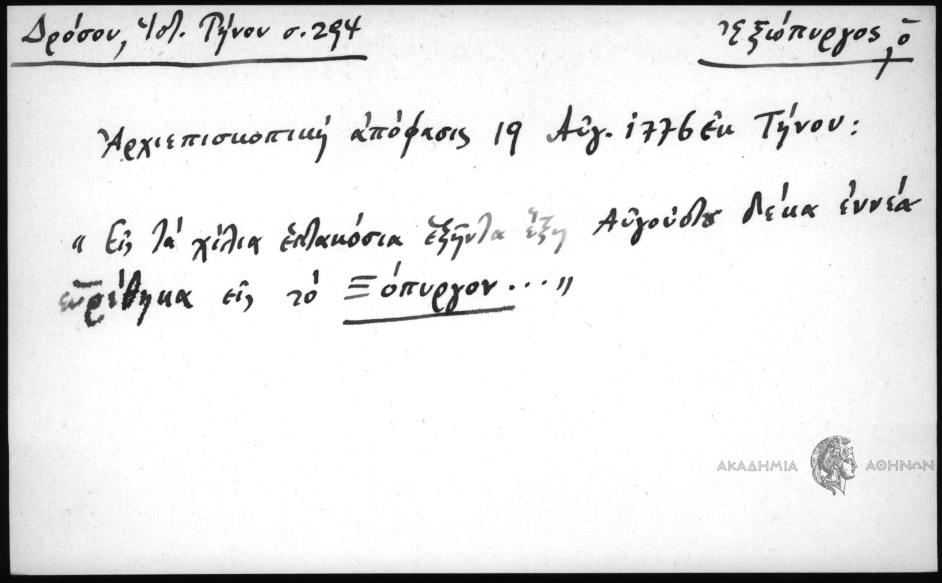 Δρόσου, Ἱστ. Τήνου σ. 294
Ἐξώπυργος, ὁ
Ἀρχιεπισκοπική ἀπόφασις 19 Αὐγ. 1776 ἐκ Τήνου:
« Εἰς τά χίλια ἑπτακόσια ἑξῆντα ἕξη Αὐγούστου δέκα ἐννέα
εὑρέθηκα εἰς τό Ξόπυργον...»
ΑΚΑΔΗΜΙΑ ΑΘΗΝΩΝ